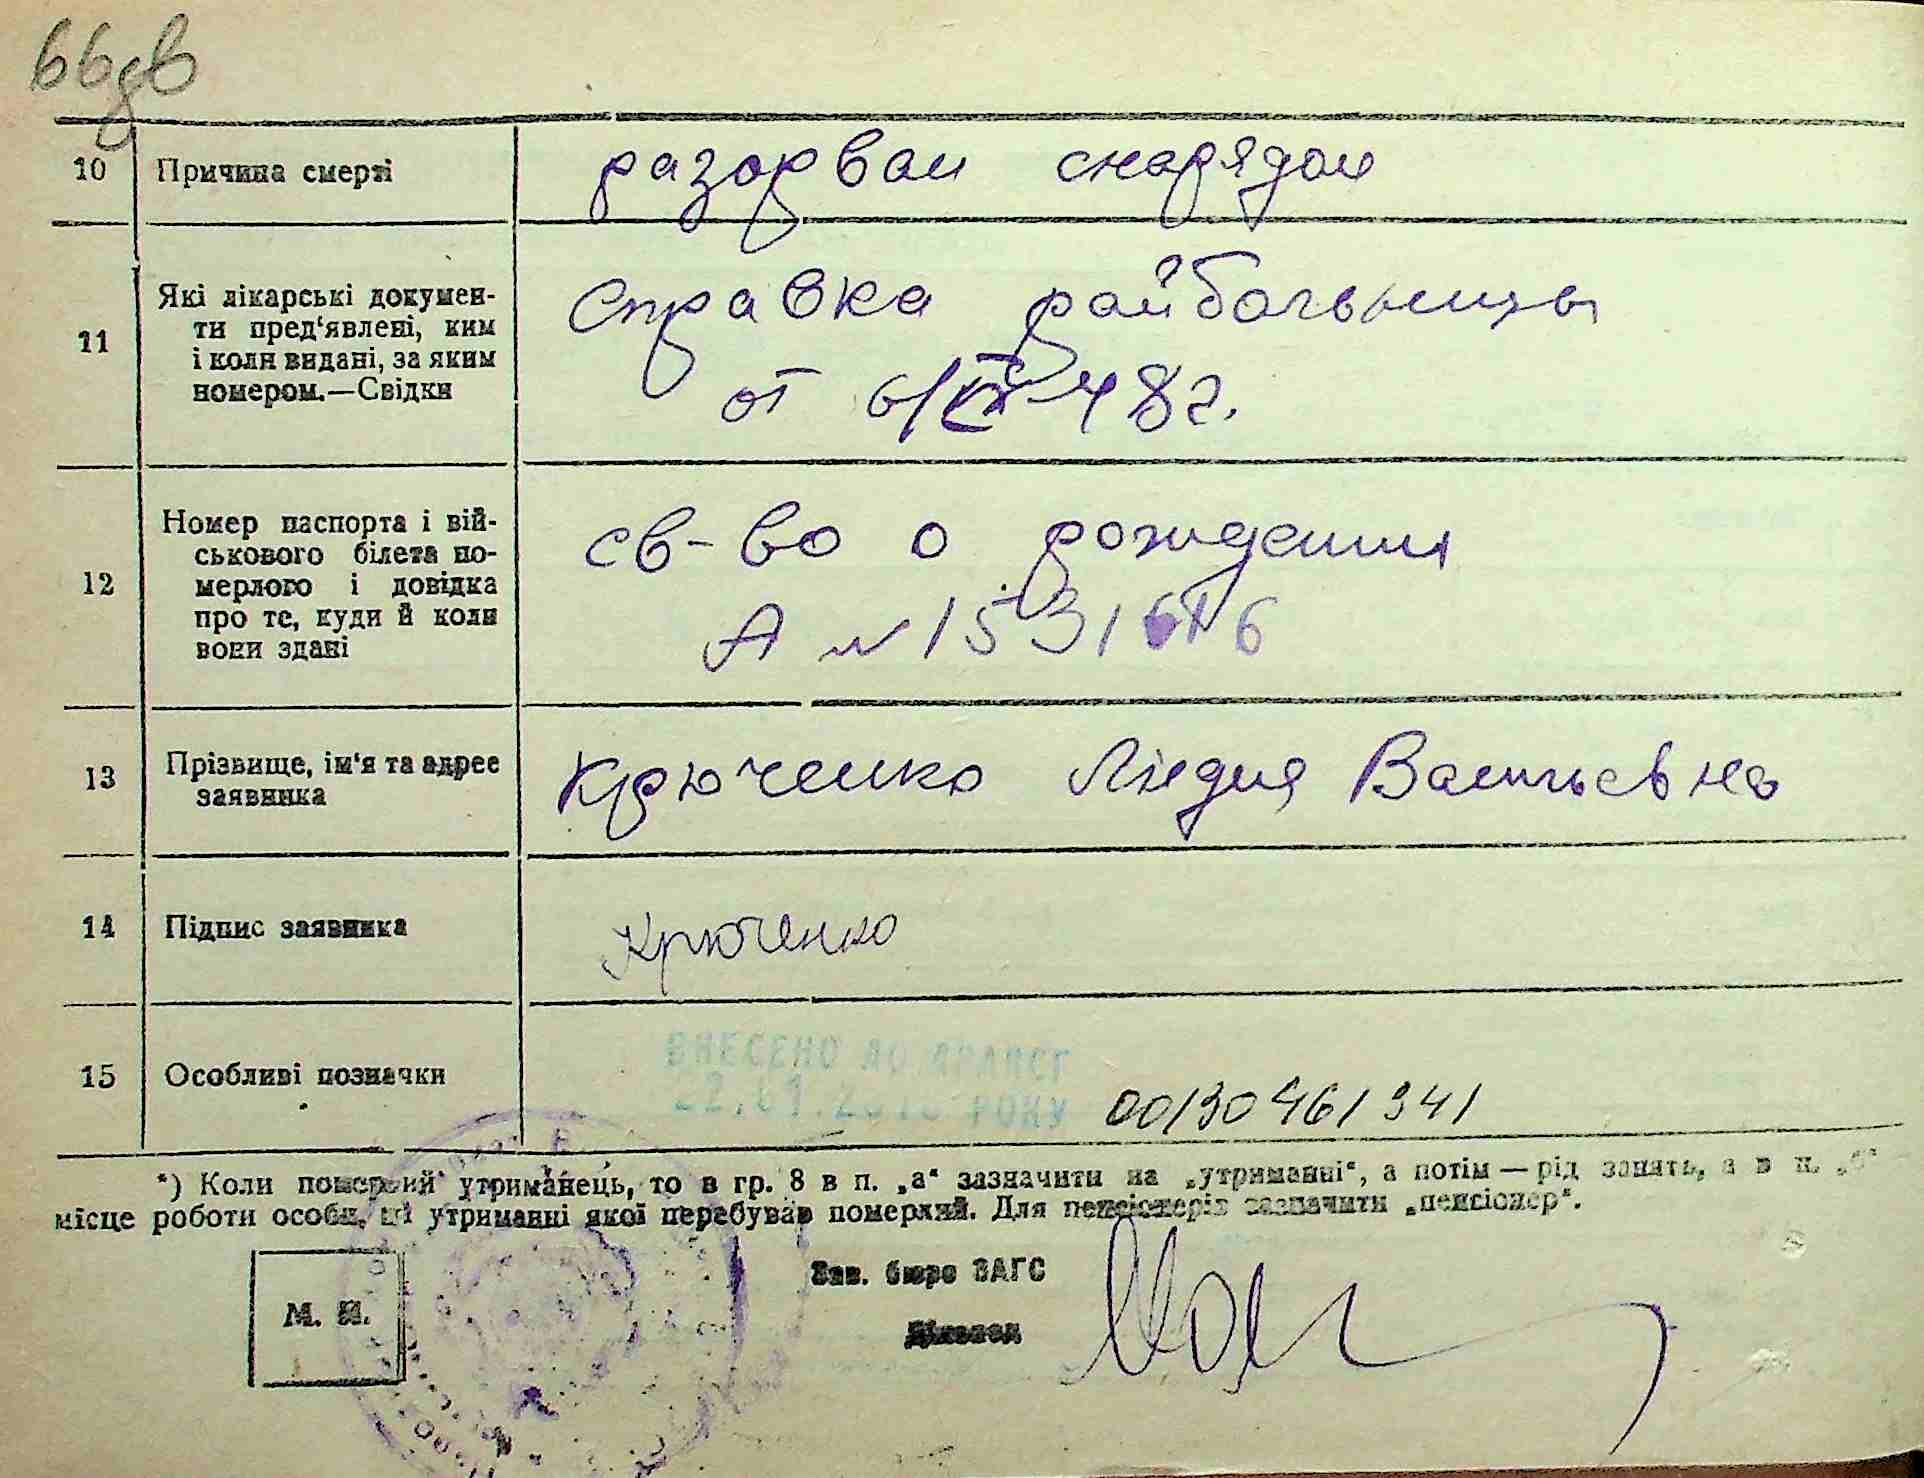 66зв
10 Причина смерті
разорван снарядом
11 Які лікарські докумен-
ти пред‘явлені, ким
і коли видані, за яким
номером.—Свідки
справка райбольницы
от 6/ 48г.
12 Номер паспорта і вій-
ськового білета по-
мерлого і довідка
про те, куди й коли
вони здані
св-во о рождении
А №
13 Прізвище, ім‘я та адрес
заявника
Крюченко Лидия Васильевна
14 Підпис заявника
Крюченко
15 Особливі позначки
ВНЕСЕНО ДО ДРАЦСГ
РОКУ
00130461341
*) Коли померлий утриманець, то в гр. 8 в п. „а“ зазначити на „утриманні“, а потім — рід занять, а в п. „б“
місце роботи особи, на утриманні якої перебував померлий. Для пенсіонерів зазначити „пенсіонер“.
М. П.
Зав. бюро ЗАГС
Діловод